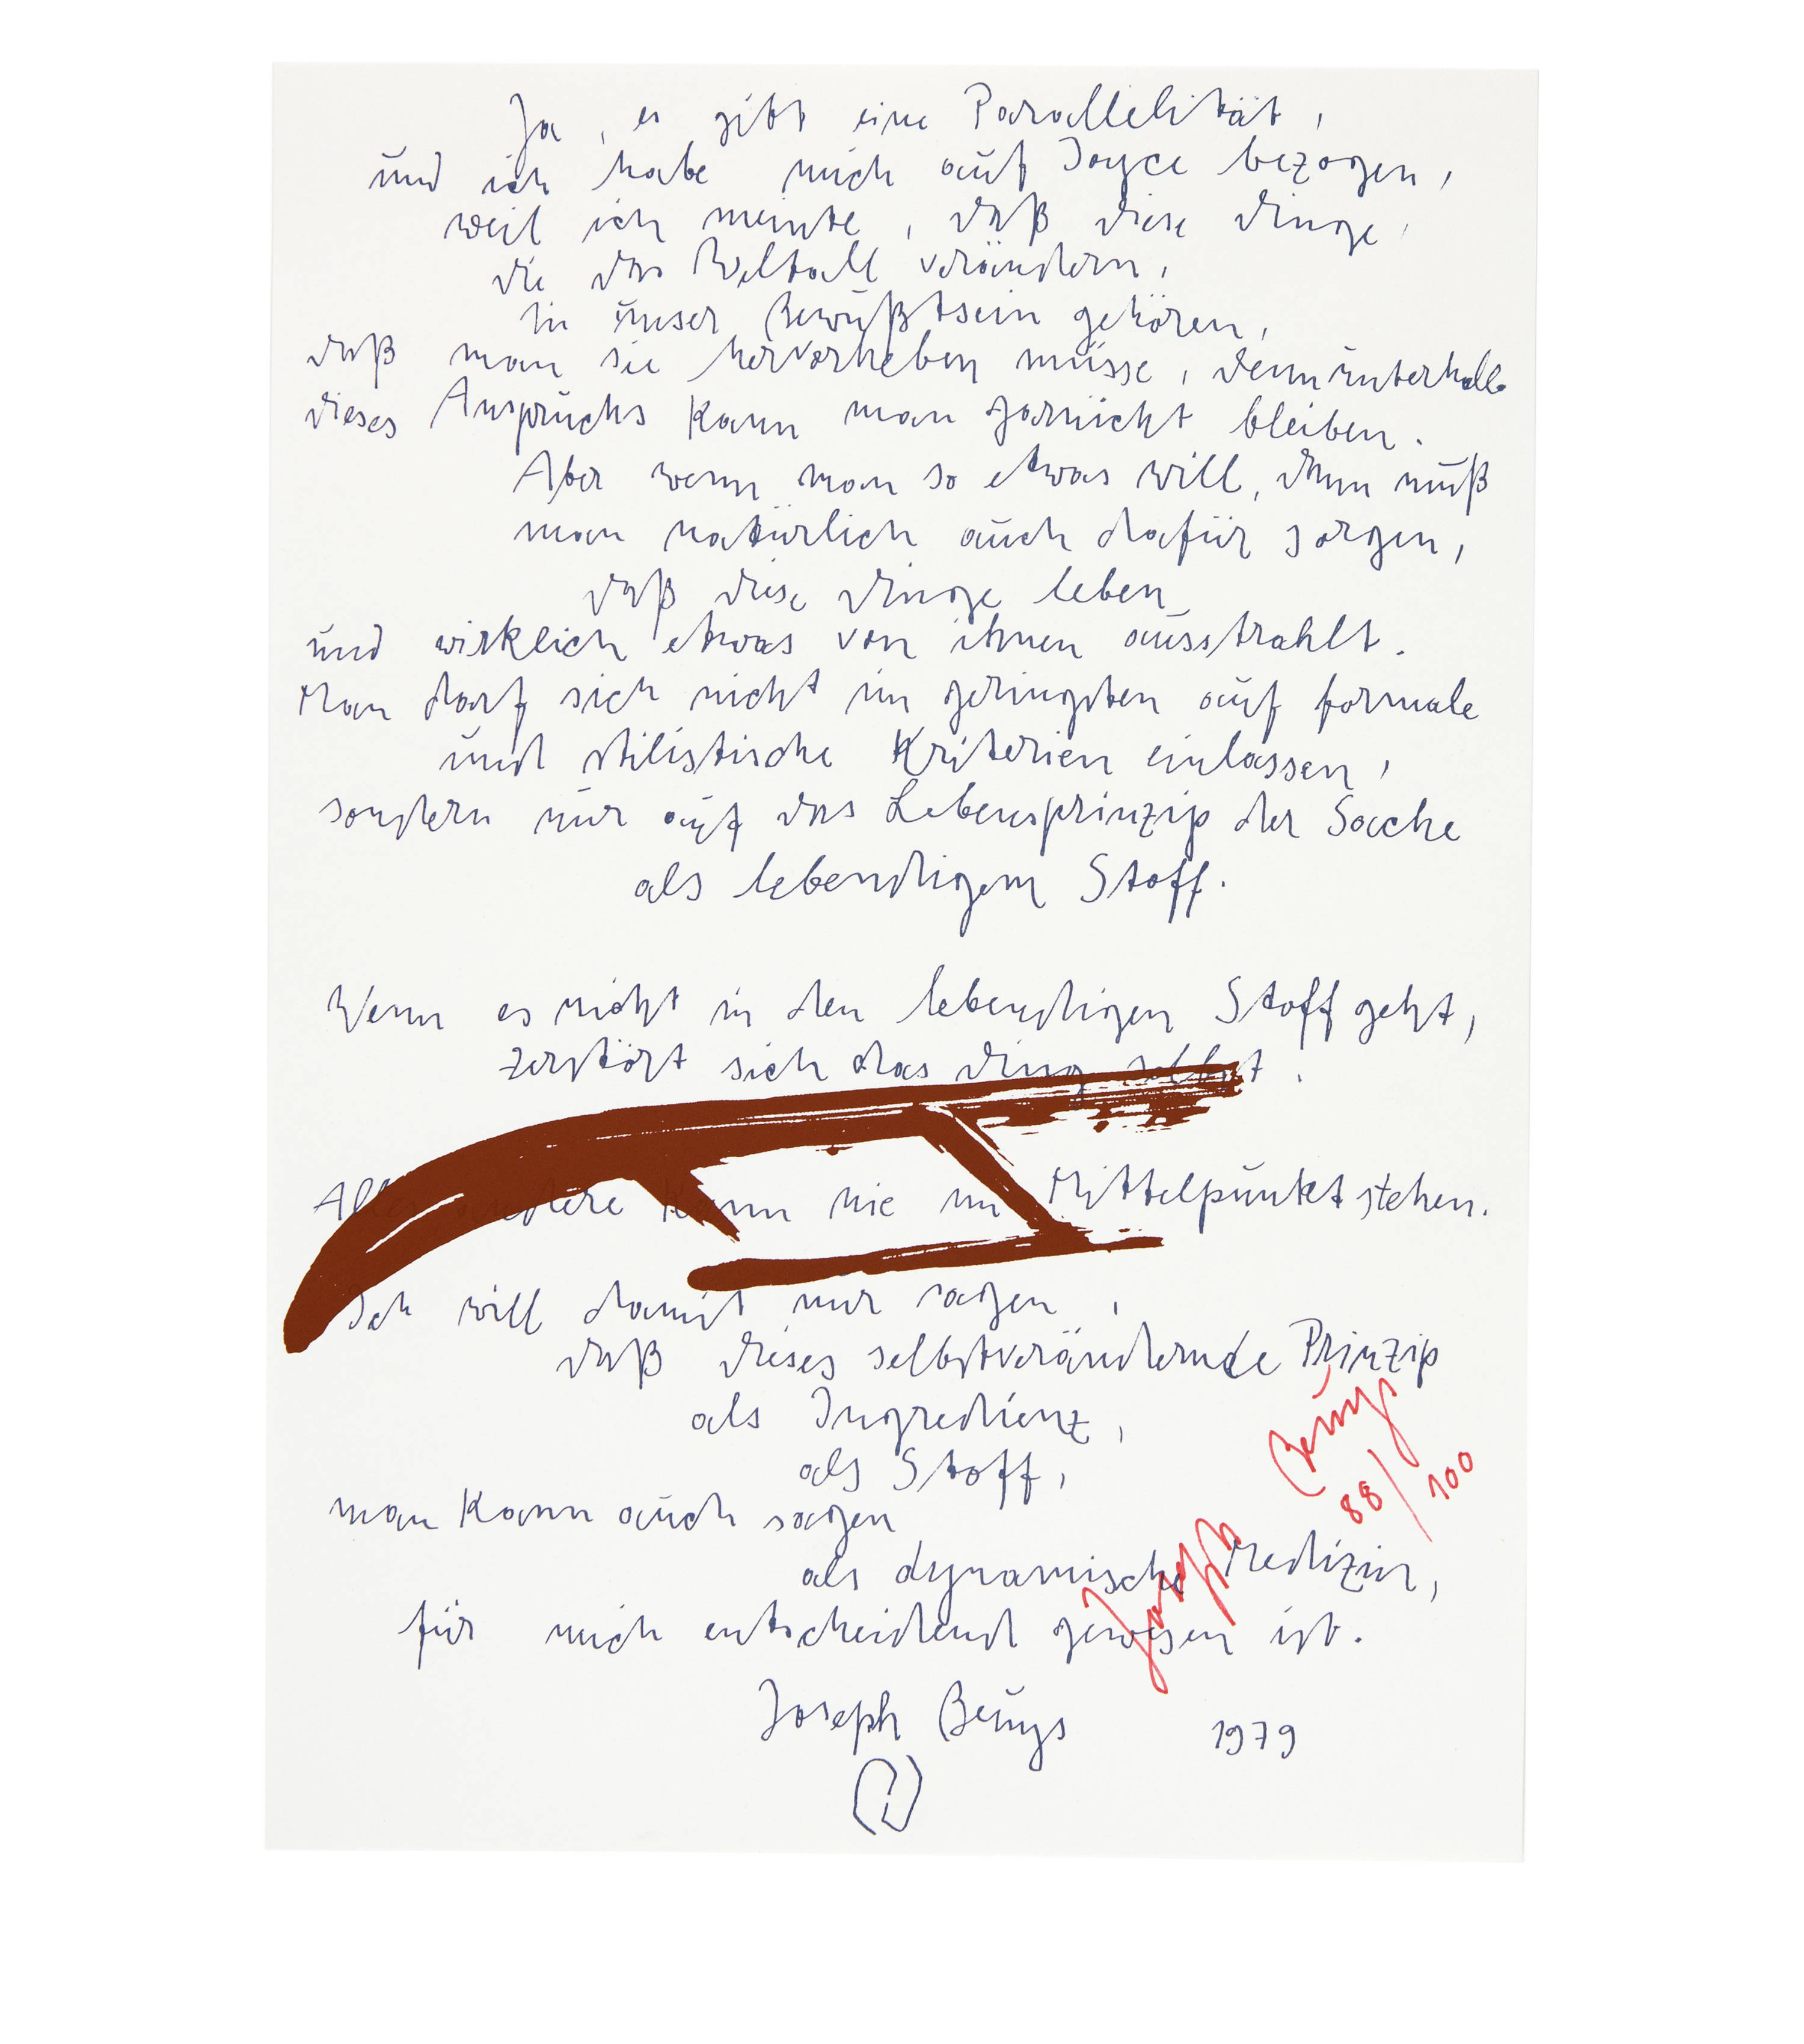 Ja, es gibt eine Parallelität,
und ich habe mich auf Joyce bezogen,
weil ich meinte, daß diese Dinge,
die das Weltall verändern,
in unser Bewußtsein gehören,
daß man sie hervorheben müsse, denn unterhalb
dieses Anspruchs kann man garnicht bleiben.
Aber wenn man so etwas will, dann muß
man natürlich auch dafür sorgen,
daß diese Dinge leben
und wirklich etwas von ihnen ausstrahlt.
Man darf sich nicht im geringsten auf formale
und stilistische Kriterien einlassen,
sondern nur auf das Lebensprinzip der Sache
als lebendigem Stoff.
Wenn es nicht in den lebendigen Stoff geht,
zerstört sich das Ding selbst.
Alles andere kann nie im Mittelpunkt stehen.
Ich will damit nur sagen,
daß dieses selbstverändernde Prinzip
als Ingredienz,
als Stoff,
man kann auch sagen
als dynamische Medizin,
für mich entscheidend gewesen ist.
Joseph Beuys 1979
Joseph Beuys
88/100